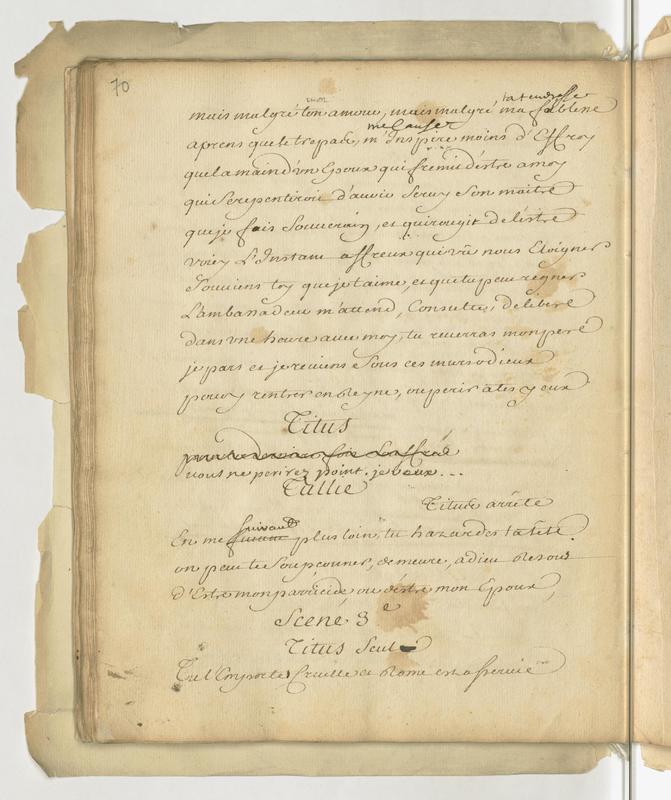 70
mon
ta tendresse
mais malgré ton amour, mais malgré ma foiblesse
me Causer
aprens que le trepas, m'Inspire moins d'Effroy
que la main d'vn Epoux qui fremit d'estre a moy
qui Se repentiroit d'auoir Seruy Son maitre
que je fais Souuerain, et qui rougit de l'estre
voicy L'Instant affreux qui va nous Eloigner
Souuiens toy que je t'aime, et que tu peux regner
L'ambassadeur m'attend, Consulte, delibere
dans vne heure auec moy, tu reuerras mon pere
je pars et je reuiens Sous ces murs odieux
pour y rentrer en Reyne, ou perir a tes yeux
Titus
vous ne perirez point. je veux...
Tullie
Titus arrête
suivant
En me plus loin, tu hazardes ta tête.
on peut te Soupçonner, demeure, adieu Resous
d'Estre mon parricide, ou d'estre mon Epoux,
Scene 3e
Titus Seul
Tu l'Emportes Cruelle et Rome est asseruie